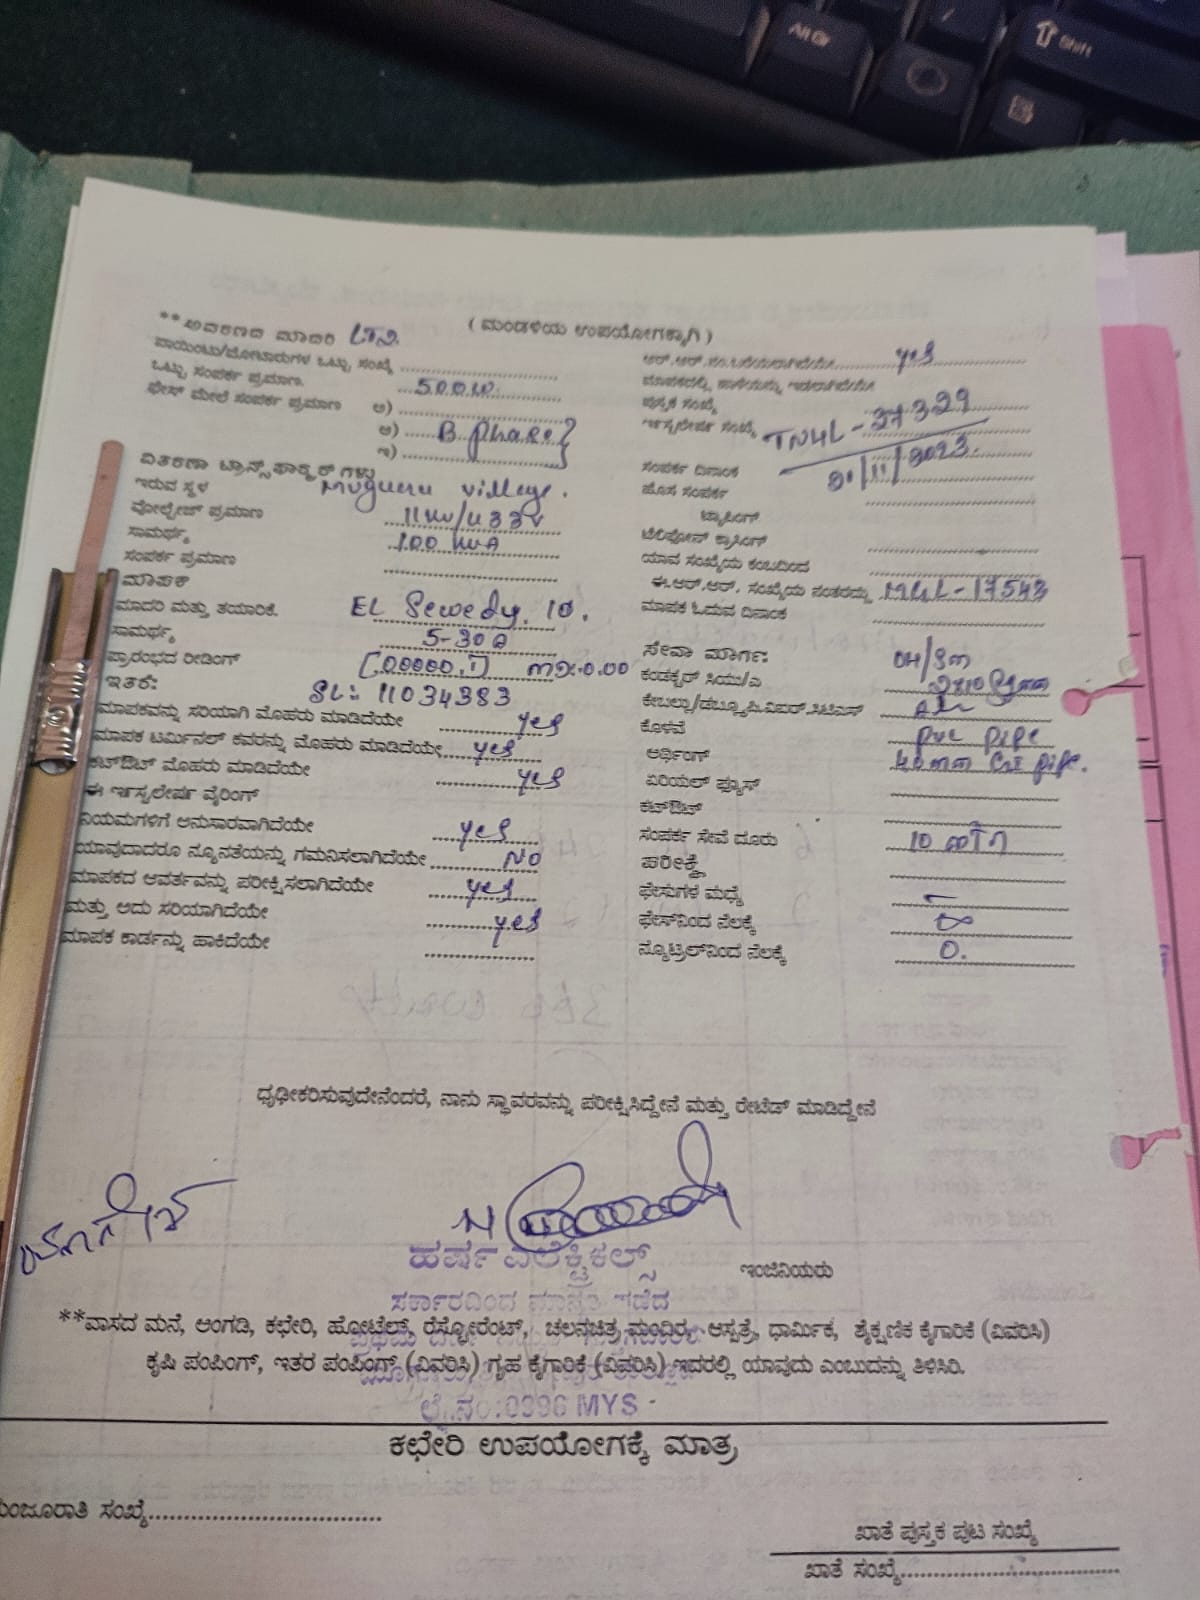 ( ಮಂಡಳಿಯ ಉಪಯೋಗಕ್ಕಾಗಿ )
**ಆವರಣದ ಮಾದರಿ
ಪಾಯಿಂಟು/ಮೋಟಾರುಗಳ ಒಟ್ಟು ಸಂಖ್ಯೆ
ಒಟ್ಟು ಸಂಪರ್ಕ ಪ್ರಮಾಣ 500W.
ಫೇಸ್ ಮೇಲೆ ಸಂಪರ್ಕ ಪ್ರಮಾಣ ಅ)
ಆ) B Phase
ಇ)
ವಿತರಣಾ ಟ್ರಾನ್ಸ್‌ಫಾರ್ಮರ್ ಗಳು
ಇರುವ ಸ್ಥಳ Muguru village.
ವೋಲ್ಟೇಜ್ ಪ್ರಮಾಣ 11KV/433V
ಸಾಮರ್ಥ್ಯ 100 KVA
ಸಂಪರ್ಕ ಪ್ರಮಾಣ
ಮಾಪಕ
ಮಾದರಿ ಮತ್ತು ತಯಾರಿಕೆ. EL Sewedy. 10.
ಸಾಮರ್ಥ್ಯ 5-30A
ಪ್ರಾರಂಭದ ರೀಡಿಂಗ್ [00000.1]
ಇತರೆ: SL: 11034383
ಮಾಪಕವನ್ನು ಸರಿಯಾಗಿ ಮೊಹರು ಮಾಡಿದೆಯೇ yes
ಮಾಪಕ ಟರ್ಮಿನಲ್ ಕವರನ್ನು ಮೊಹರು ಮಾಡಿದೆಯೇ yes
ಕಟ್‌ಔಟ್ ಮೊಹರು ಮಾಡಿದೆಯೇ yes
ಈ ಇನ್ಸ್ಟಲೇಷನ್ ವೈರಿಂಗ್
ನಿಯಮಗಳಿಗೆ ಅನುಸಾರವಾಗಿದೆಯೇ yes
ಯಾವುದಾದರೂ ನ್ಯೂನತೆಯನ್ನು ಗಮನಿಸಲಾಗಿದೆಯೇ NO
ಮಾಪಕದ ಆವರ್ತವನ್ನು ಪರೀಕ್ಷಿಸಲಾಗಿದೆಯೇ yes
ಮತ್ತು ಅದು ಸರಿಯಾಗಿದೆಯೇ yes
ಮಾಪಕ ಕಾರ್ಡನ್ನು ಹಾಕಿದೆಯೇ
yes
ಪುಸ್ತಕ ಸಂಖ್ಯೆ
ಇನ್ಸ್ಟಲೇಷನ್ ಸಂಖ್ಯೆ TNHL-27329
ಸಂಪರ್ಕ ದಿನಾಂಕ 21/11/2023.
ಹೊಸ ಸಂಪರ್ಕ
ಟ್ಯಾಪಿಂಗ್
ಟೆಲಿಫೋನ್ ಕ್ರಾಸಿಂಗ್
ಯಾವ ಸಂಖ್ಯೆಯ ಕಂಬದಿಂದ
ಈ.ಆರ್.ಆರ್. ಸಂಖ್ಯೆಯ ನಂತರಯ್ಯ MGL-17543
ಮಾಪಕ ಓದುವ ದಿನಾಂಕ
ಸೇವಾ ಮಾರ್ಗ: OH/
ಕಂಡಕ್ಟರ್ ಸಿಯು/ಎ
ಕೇಬಲ್ಲು/ಡಬ್ಲ್ಯೂ.ಪಿ.ವಿಐಆರ್.ಸಿಟಿಎಸ್
ಕೊಳವೆ PVC PIPE
ಆರ್ಥಿಂಗ್ 40mm GI pipe.
ಏರಿಯಲ್ ಫ್ಯೂಸ್
ಕಟ್‌ಔಟ್
ಸಂಪರ್ಕ ಸೇವೆ ದೂರು 10
ಪರೀಕ್ಷೆ
ಫೇಸುಗಳ ಮಧ್ಯೆ –
ಫೇಸ್‌ನಿಂದ ನೆಲಕ್ಕೆ ∞
ನ್ಯೂಟ್ರಲ್‌ನಿಂದ ನೆಲಕ್ಕೆ 0.
ಧೃಢೀಕರಿಸುವುದೇನೆಂದರೆ, ನಾನು ಸ್ಥಾವರವನ್ನು ಪರೀಕ್ಷಿಸಿದ್ದೇನೆ ಮತ್ತು ರೇಟೆಡ್ ಮಾಡಿದ್ದೇನೆ
ಹರ್ಷ ಎಲೆಕ್ಟ್ರಿಕಲ್ಸ್
ಇಂಜಿನಿಯರು
ಸರ್ಕಾರದಿಂದ ಮಾನ್ಯತೆ ಪಡೆದ
**ವಾಸದ ಮನೆ, ಅಂಗಡಿ, ಕಛೇರಿ, ಹೋಟೆಲ್, ರೆಸ್ಟೋರೆಂಟ್, ಚಲನಚಿತ್ರ ಮಂದಿರ, ಆಸ್ಪತ್ರೆ, ಧಾರ್ಮಿಕ, ಶೈಕ್ಷಣಿಕ ಕೈಗಾರಿಕೆ (ವಿವರಿಸಿ)
ಕೃಷಿ ಪಂಪಿಂಗ್, ಇತರ ಪಂಪಿಂಗ್ (ವಿವರಿಸಿ) ಗೃಹ ಕೈಗಾರಿಕೆ (ವಿವರಿಸಿ) ಇದರಲ್ಲಿ ಯಾವುದು ಎಂಬುದನ್ನು ತಿಳಿಸಿರಿ.
ಲೈ.ನಂ:0396 MYS
ಕಛೇರಿ ಉಪಯೋಗಕ್ಕೆ ಮಾತ್ರ
ಮಂಜೂರಾತಿ ಸಂಖ್ಯೆ
ಖಾತೆ ಪುಸ್ತಕ ಪುಟ ಸಂಖ್ಯೆ
ಖಾತೆ ಸಂಖ್ಯೆ
Alt Gr
Shift